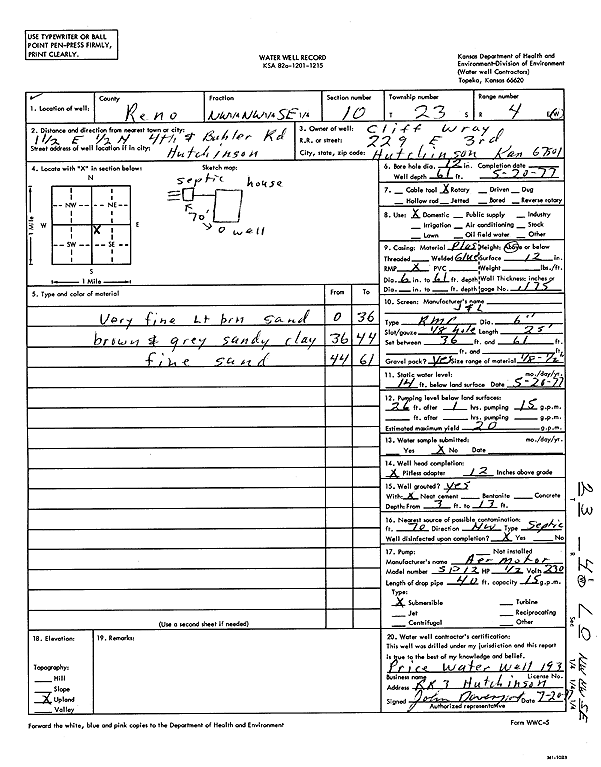 USE TYPEWRITER OR BALL
POINT PEN-PRESS FIRMLY,
PRINT CLEARLY.
WATER WELL RECORD
KSA 82a-1201-1215
Kansas Department of Health and
Environment-Division of Environment
(Water well Contractors)
Topeka, Kansas 66620
1. Location of well:
County
Reno
Fraction
NW1/4 NW1/4 SE 1/4
Section number
10
Township number
T 23 S
Range number
R 4 E/W
2. Distance and direction from nearest town or city:
1 1/2 E 1/2 N 4th & Buhler Rd
Street address of well location if in city:
Hutchinson
3. Owner of well: Cliff Wray
R.R. or street: 229 E 3rd
City, state, zip code: Hutchinson Kan 67501
4. Locate with "X" in section below:
N
NW NE
W X E
SW SE
S
1 Mile
1 Mile
Sketch map:
septic
house
70'
O well
6. Bore hole dia. 12 in. Completion date
Well depth 61 ft. 5-20-77
7. Cable tool X Rotary Driven Dug
Hollow rod Jetted Bored Reverse rotary
8. Use: X Domestic Public supply Industry
Irrigation Air conditioning Stock
Lawn Oil field water Other
9. Casing: Material Plas Height: Above or below
Threaded Welded Glue Surface 12 in.
RMP X PVC Weight lbs./ft.
Dia. 6 in. to 61 ft. depth Wall Thickness: inches or
Dia. in. to ft. depth gage No. .175
5. Type and color of material From To
Very fine Lt brn sand 0 36
brown & grey sandy clay 36 44
fine sand 44 61
10. Screen: Manufacturer's name
Type RMP Dia. 6"
Slot/gauze 1/8 hole Length 25'
Set between 36 ft. and 61 ft.
ft. and ft.
Gravel pack? Yes Size range of material 1/8-
11. Static water level: mo./day/yr.
14 ft. below land surface Date 5-20-77
12. Pumping level below land surfaces:
26 ft. after 1 hrs. pumping 15 g.p.m.
ft. after hrs. pumping g.p.m.
Estimated maximum yield 20 g.p.m.
13. Water sample submitted: mo./day/yr.
Yes X No Date
14. Well head completion:
X Pitless adapter 12 Inches above grade
15. Well grouted? yes
With: X Neat cement Bentonite Concrete
Depth: From 3 ft. to 13 ft.
16. Nearest source of possible contamination:
ft. 70 Direction NW Type Septic
Well disinfected upon completion? X Yes No
17. Pump: Not installed
Manufacturer's name Aermotor
Model number SP12 HP 1/2 Volts 230
Length of drop pipe 40 ft. capacity 15 g.p.m.
Type:
X Submersible Turbine
Jet Reciprocating
Centrifugal Other
(Use a second sheet if needed)
18. Elevation:
Topography:
Hill
Slope
X Upland
Valley
19. Remarks:
20. Water well contractor's certification:
This well was drilled under my jurisdiction and this report
is true to the best of my knowledge and belief.
Price Water Well 193
Business name License No.
Address RR3 Hutchinson
Signed John Davenport Date 7-20-77
Authorized representative
Forward the white, blue and pink copies to the Department of Health and Environment
Form WWC-5
T 23 R 4 W Sec 10 NW NW SE
1/4 1/4 1/4